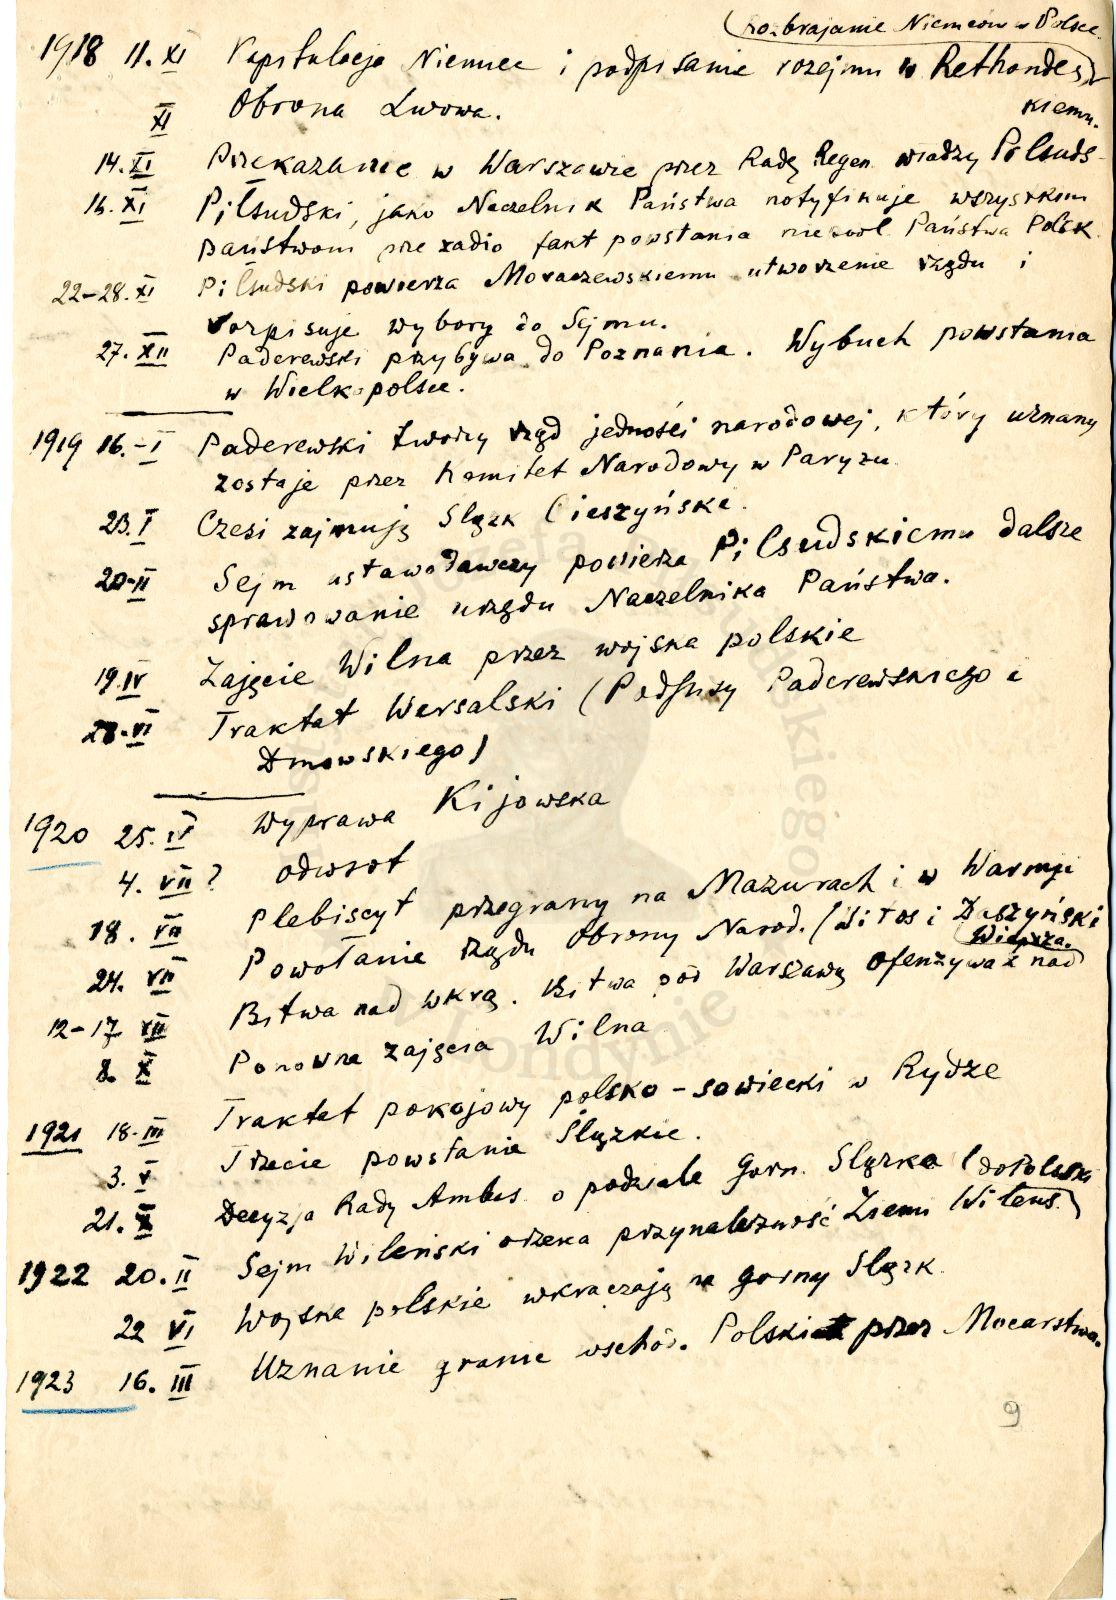 (rozbrajanie Niemców w Polsce.
1918 11.XI Kapitulacja Niemiec i podpisanie rozejmu w Rethondes)
XI Obrona Lwowa.
14.XI Przekazanie w Warszawie przez Radę Regen. władzy Piłsuds-
kiemu.
16.XI Piłsudski, jako Naczelnik Państwa notyfikuje wszystkim
państwom prze radio fakt powstania niezawł Państwa Polsk.
22-28.XI Piłsudski powierza Moraczewskiemu utworzenie rządu i
rozpisuje wybory do Sejmu.
27.XII Paderewski przybywa do Poznania. Wybuch powstania
w Wielkopolsce.
1919 16.-I Paderewski tworzy rząd jedności narodowej, który uznany
zostaje przez Komitet Narodowy w Paryżu
23.I Czesi zajmują Slązk Cieszyński.
20-II Sejm ustawodawczy powierza Piłsudskiemu dalsze
sprawowanie urzędu Naczelnika Państwa.
19.IV Zajęcie Wilna przez wojska polskie
28.VI Traktat Wersalski (Podpisy Paderewskiego i
Dmowskiego)
1920 25.IV Wyprawa Kijowska
4. VII? odwrot
18. VII Plebiscyt przegrany na Mazurach i w Warmji
24. VII Powołanie rządu Obrony Narod. (Witos i Daszyński
12-17 Bitwa nad Wkrą. Bitwa pod Warszawą ofenzywa z nad
Wieprza.
8. X Ponowne zajęcia Wilna
1921 18-III Traktat pokojowy polsko-sowiecki w Rydze
3. V Trzecie powstanie Ślązkie.
21. X Decyzja Rady Ambas. o podziale Gorn. Slązka (do Polski
1922 20.II Sejm Wileński orzeka przynależność Ziemi Wileńs.)
22 VI Wojska polskie wkraczają na gorny Slązk.
1923 16. III Uznanie granic wschod. Polski przez Mocarstwa.
9